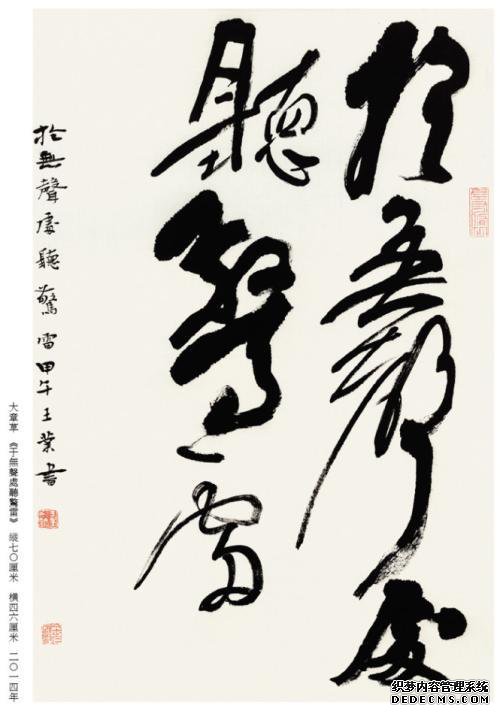 於無聲處
聽驚雷
於無聲處聽驚雷甲午王業書
大章草 《于無聲處聽驚雷》 縱七〇厘米 橫四六厘米 二〇一四年
织梦内容管理系统
DEDECMS.COM